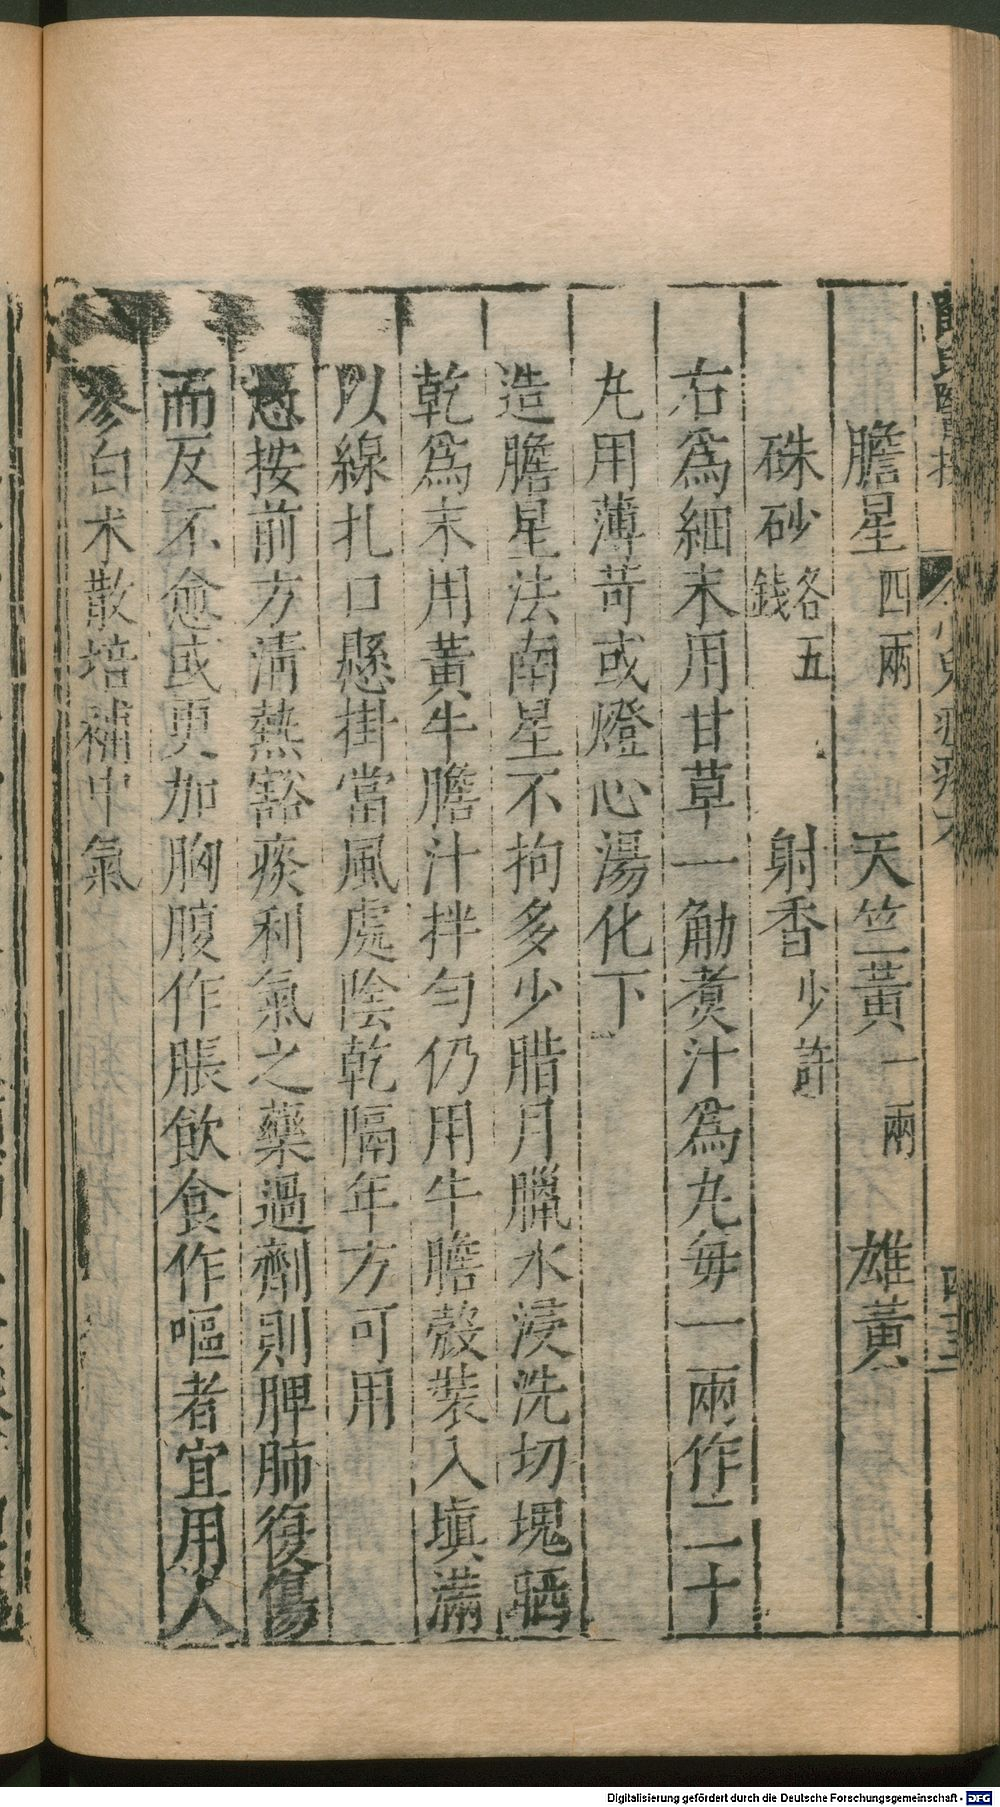 膽星四兩 天竺黃一兩 雄黃
硃砂各五錢 射香少許
右爲細末用甘草一觔煑汁爲丸每一兩作二十
丸用薄荷或燈心湯化下
造膽星法南星不拘多少腊月臘水浸洗切塊晒
乾爲末用黃牛膽汁拌勻仍用牛膽殼裝入塡滿
以線扎口懸掛當風處陰乾隔年方可用
愚按前方淸熱豁痰利氣之藥過劑則脾肺復傷
而反不愈或更加胸腹作脹飮食作嘔者宜用人
參白术散培補中氣
Digitalisierung gefördert durch die Deutsche Forschungsgemeinschaft - DFG